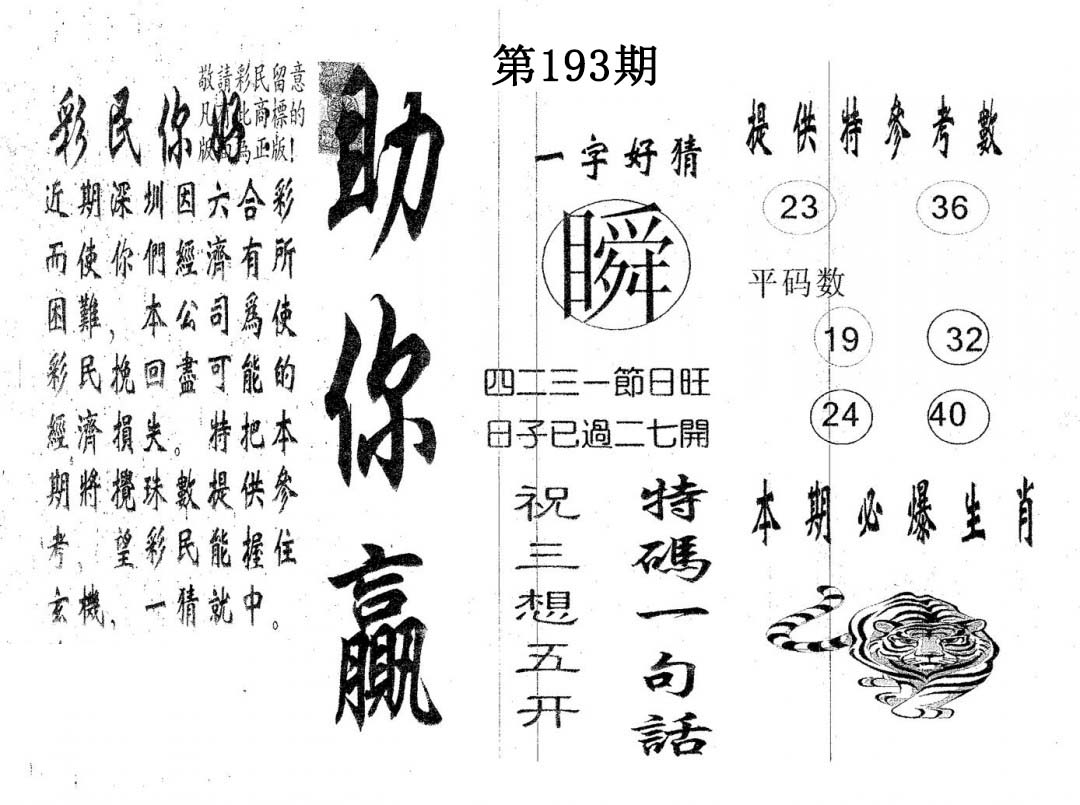 第193期
敬請彩民留意
凡 此商標的
版 為正版!
彩民你好
近期深圳因六合彩
而使你們經濟有所
困難，本公司爲使
彩民挽回盡可能的
經濟損失。特把本
期將攪珠數提供參
考，望彩民能握住
玄機，一猜就中。
助你贏
一字好猜
瞬
四二三一節日旺
日子已過二七開
特碼一句話
祝三想五开
提供特參考數
23 36
平码数
19 32
24 40
本期必爆生肖